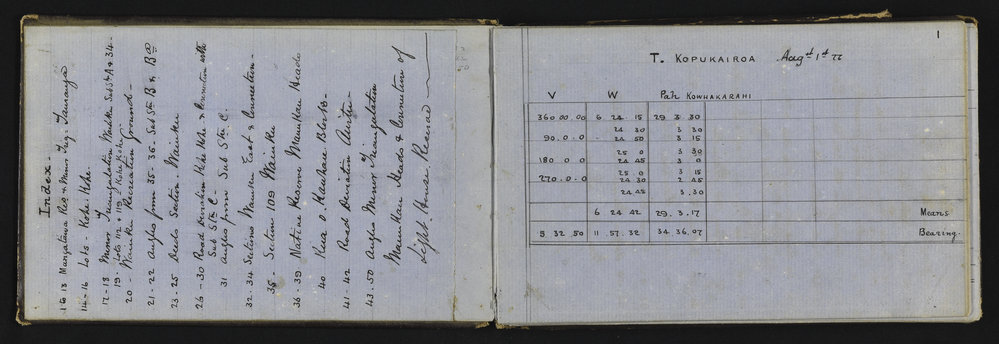 Index -
1 to 13 Mangatawa Reg & Minor Trig. Tauranga
14-16 Lots. Kohe. Kohe.
12-18 Minor Triangulation Waiuku Sub Stn A & 34-
19- Lots 112 & 119 Kohe Kohe
20 - Waiuku Recreation Ground -
21-22 Angles from 35-36. Sub Stn B & B
23. 25 Deeds Section. Waiuku
26-30 Road Deviation Kohe Kohe & Connection with
Sub Stn C-
31 Angles from Sub Stn C.
32. 34 Sections Waiuku East & Connection-
35- Section 109 Waiuku
36-39 Native Reserve Manukau Heads
40 Blocks-
41-42 Road Deviation Awitu-
43.50 Angles Minor Triangulation
Manukau Heads & Connection of
Light House Reserve
1
T. KOPUKAIROA Augst 1st 77
V W Pah KOWHAKARAHI
360 00. 00 6 24 15 29 3. 30
24 30 3 30
90. 0. 0 24 50 3 15
25 0 3 30
180 0. 0 24 45 3 0
25 0 3 15
270. 0. 0 24 30 2 45
24 45 3. 30
6 24 42 29. 3. 17 Means
5. 32. 50 11. 57. 32 34 36. 07 Bearing.